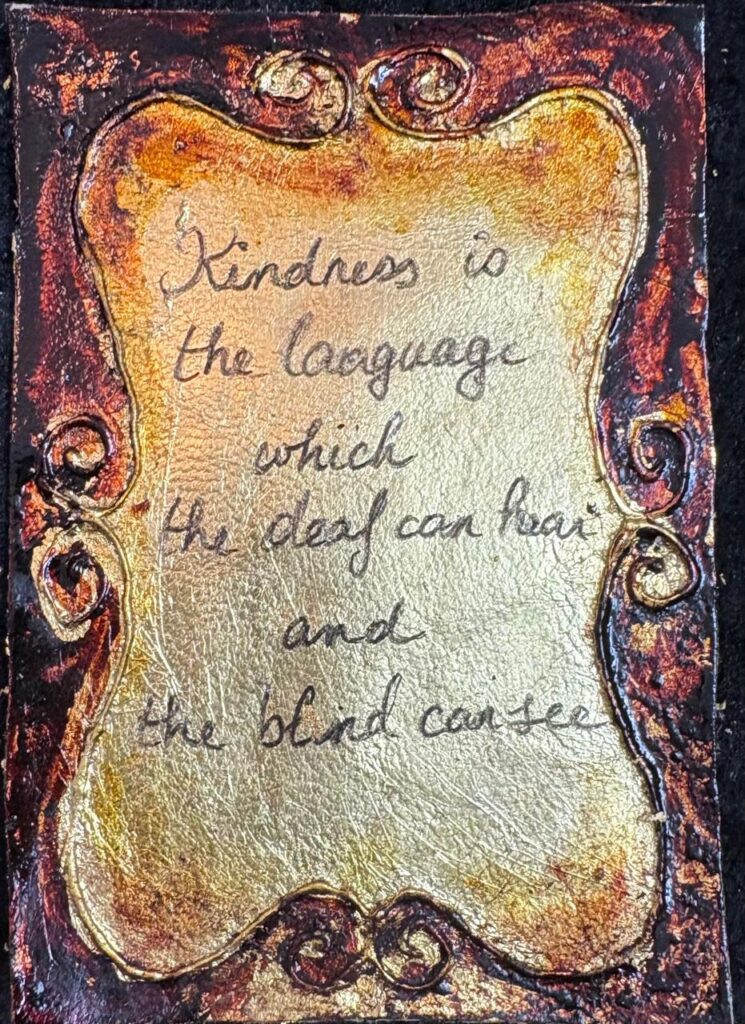 Kindness is
the language
which
the deaf can hear
and
the blind can see